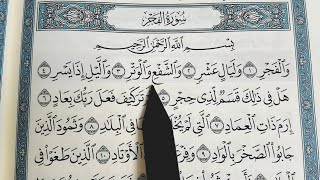 سُورَةُ الفَجْرِ
بِسْمِ اللَّهِ الرَّحْمَٰنِ الرَّحِيمِ
وَالْفَجْرِ ١ وَلَيَالٍ عَشْرٍ ٢ وَالشَّفْعِ وَالْوَتْرِ ٣ وَاللَّيْلِ إِذَا يَسْرِ ٤
هَلْ فِي ذَٰلِكَ قَسَمٌ لِّذِي حِجْرٍ ٥ كَيْفَ فَعَلَ رَبُّكَ بِعَادٍ ٦
إِرَمَ ذَاتِ الْعِمَادِ ٧ الَّتِي لَمْ فِي الْبِلَادِ ٨ وَثَمُودَ الَّذِينَ
جَابُوا الصَّخْرَ بِالْوَادِ ٩ الْأَوْتَادِ ١٠ الَّذِينَ طَغَوْا فِي